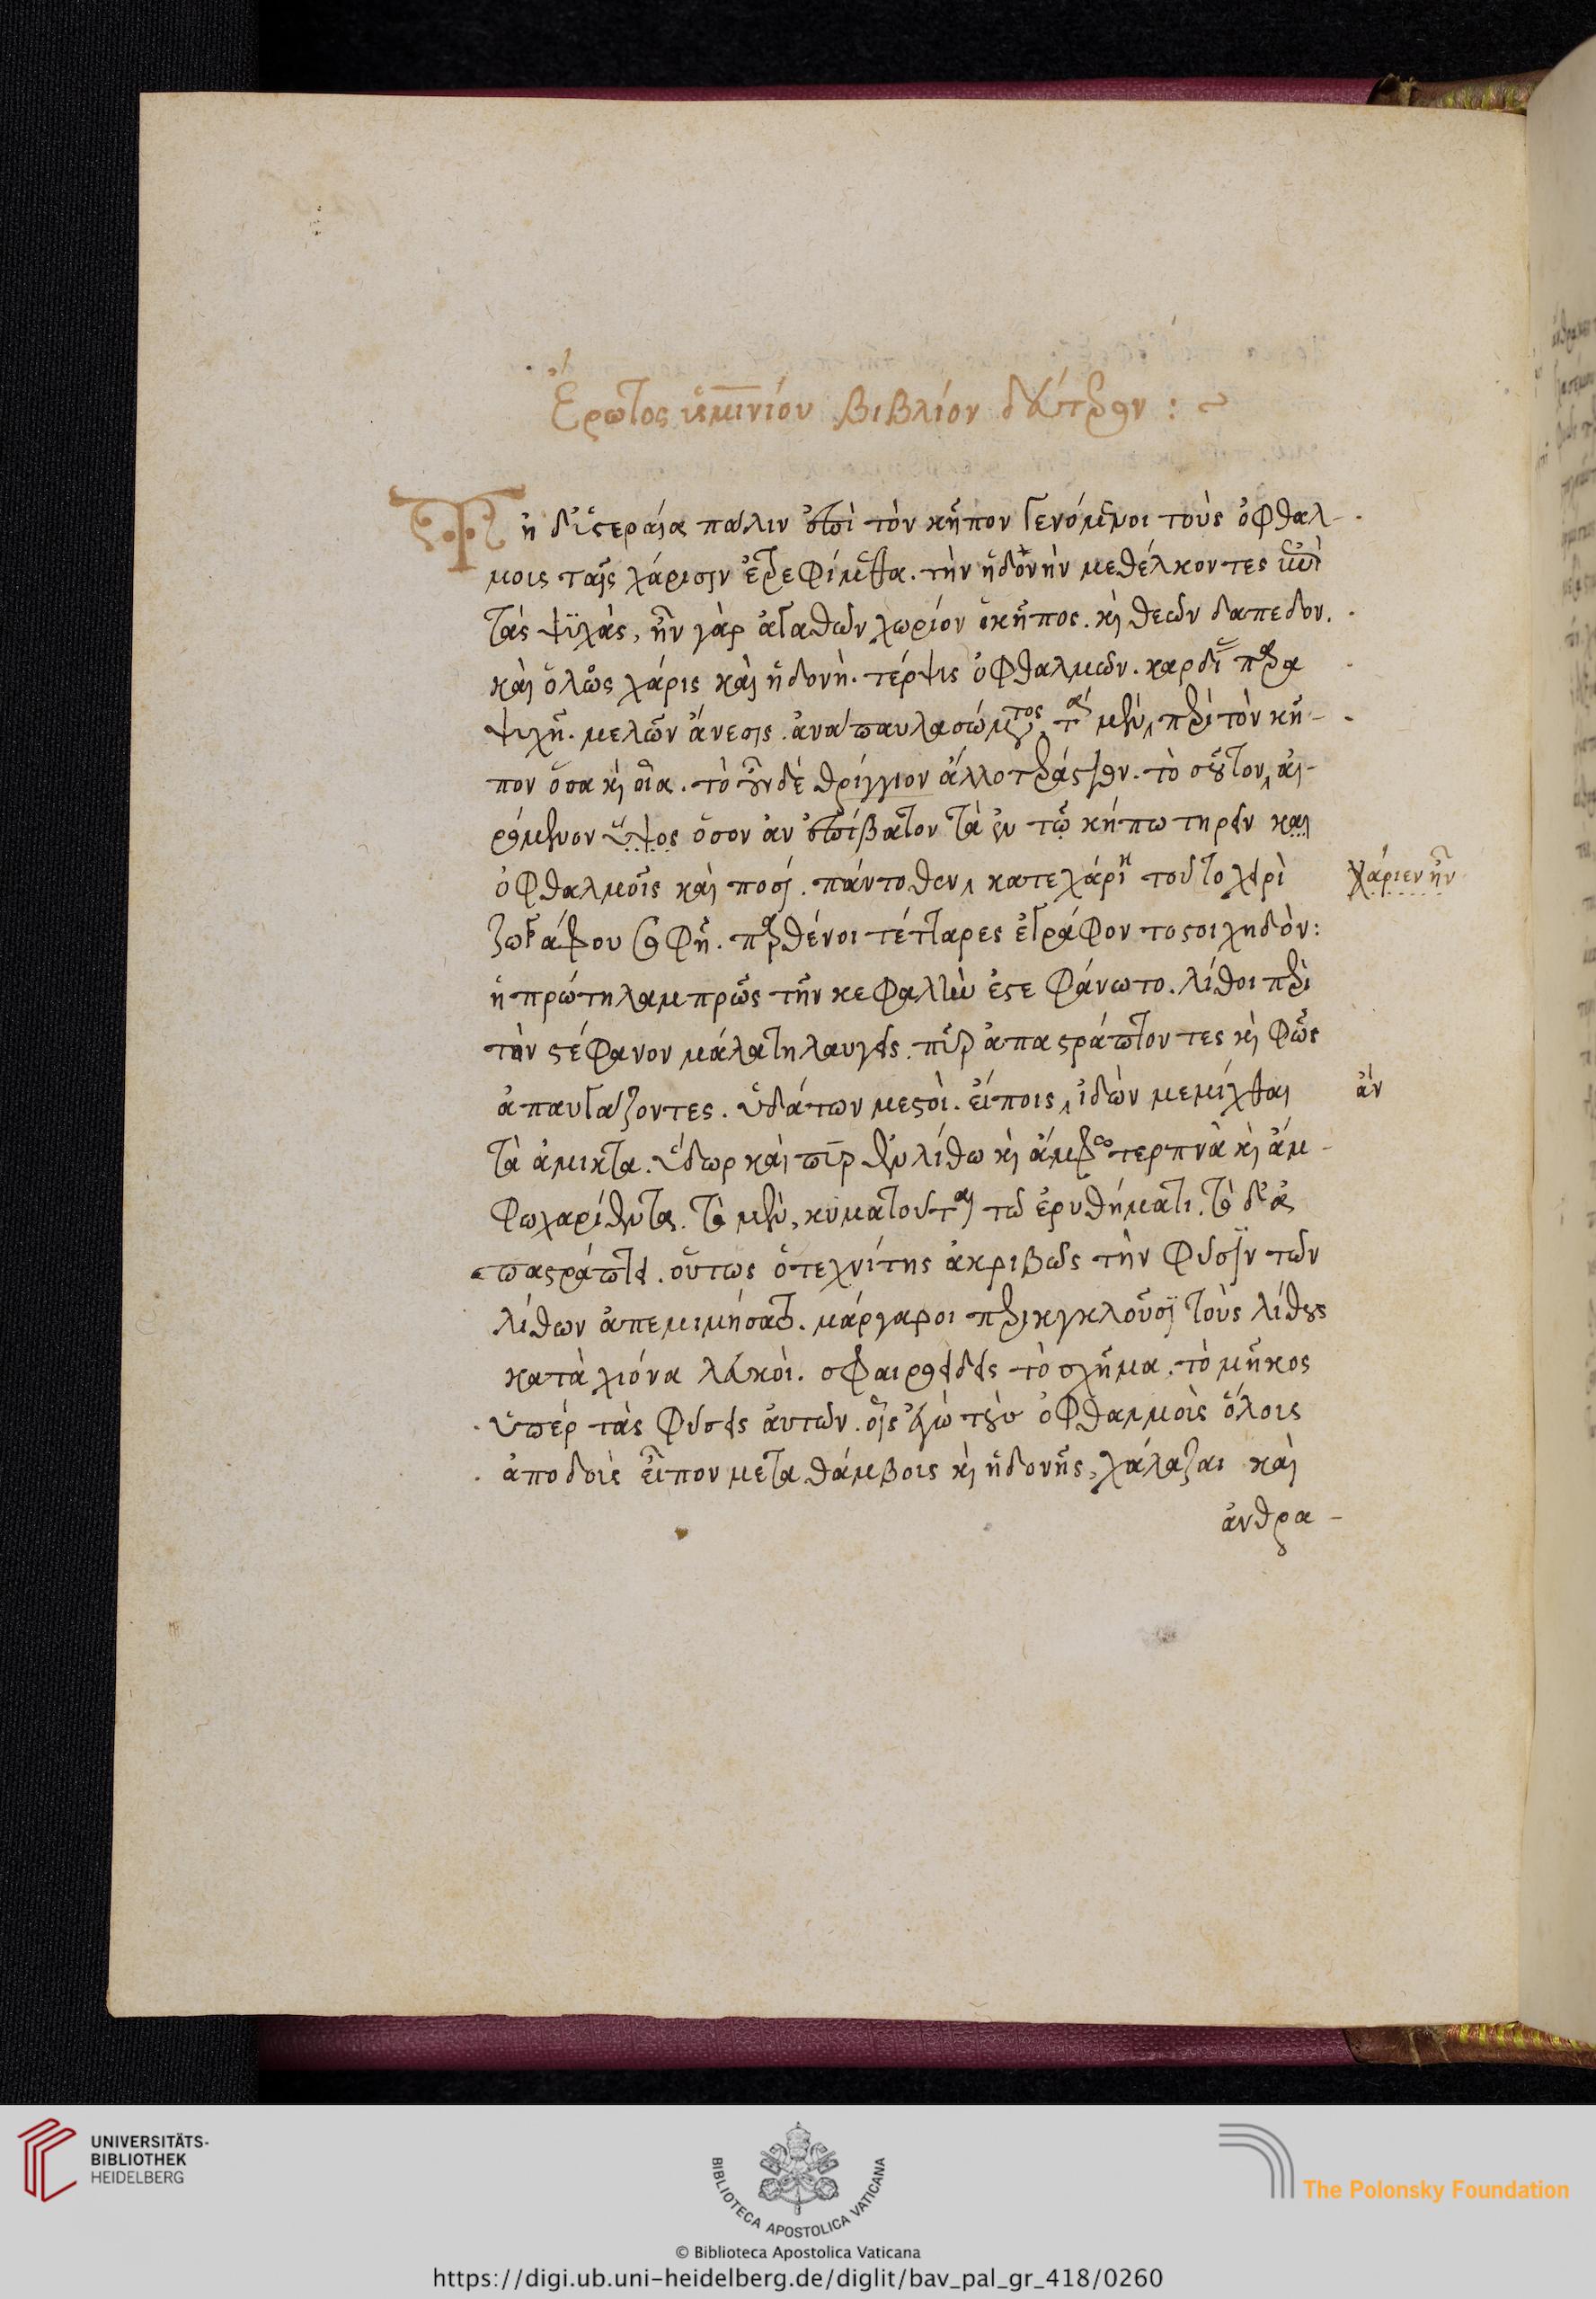 Ἔρωτος ὑσμινίου βιβλίον δεύτερον :~
Τῇ δ' ὑστεραίᾳ πάλιν ἐπὶ τὸν κῆπον γενόμενοι τοὺς ὀφθαλ-
μοις ταῖς χάρισιν ἐτρεφόμεθα. τὴν ἡδονὴν μεθέλκοντες ἐπὶ
τὰς ψυχὰς, ἦν γὰρ ἀγαθῶν χωρίον ὁ κῆπος. καὶ θεῶν δαπεδον.
καὶ ὅλως χάρις καὶ ἡδονὴ. τέρψις ὀφθαλμῶν. καρδίας παρα
ψυχῆ. μελῶν ἄνεσις. ἀνάπαυλα σώματος. τὰ μὲν περὶ τὸν κῆ-
πον ὅσα καὶ οἷα. τὸ γοῦν δὲ θρίγγιον ἄλλο τεράστιον. τὸ σοῦτον, αἰ-
ρόμενον ὕψος ὅσον ἀν ἐπίβατον τὰ ἐν τῷ κήπω τηρεῖν και
ὀφθαλμοῖς καὶ ποσί. πάντοθεν κατεχάρη τοῦτο χειρὶ
ζωγράφου σοφῆ. παρθένοι τέτταρες ἐγράφον το στοιχηδὸν:
ἡ πρώτη λαμπρῶς τὴν κεφαλὴν ἐστεφάνωτο. λίθοι περὶ
τὸν στέφανον μάλα τηλαυγεῖς. πῦρ ἀπαστράπτοντες καὶ φῶς
ἀπαυγάζοντες. ὑδάτων μεστοὶ. εἴποις ἰδὼν μεμίχθαι
τὰ ἄμικτα. ὕδωρ καὶ πῦρ ἐν λίθω καὶ ἄμφω τερπνὰ καὶ ἄμ-
φω χαρίεντα. τὸ μὲν, κυματοῦται τῷ ἐρυθήματι. τὸ δ' ἀ
παστράπτει. οὕτως ὁ τεχνίτης ἀκριβῶς τὴν φύσιν τῶν
λίθων ἀπεμιμήσατο. μάργαροι περικυκλοῦσι τοὺς λίθους
κατὰ χιόνα λευκοὶ. σφαιροειδεῖς τὸ σχῆμα. τὸ μῆκος
ὑπὲρ τὰς φύσεις αὐτῶν. οἷς ἐγὼ τοὺς ὀφθαλμοὶς ὅλοις
ἀποδοὶς εἶπον μετα θάμβοις καὶ ἡδονῆς, χάλαζαι καὶ
ἀνθρα-
χάριεν ἦν
ἀν
UNIVERSITÄTS-
BIBLIOTHEK
HEIDELBERG
BIBLIOTECA APOSTOLICA VATICANA
© Biblioteca Apostolica Vaticana
The Polonsky Foundation
https://digi.ub.uni-heidelberg.de/diglit/bav_pal_gr_418/0260